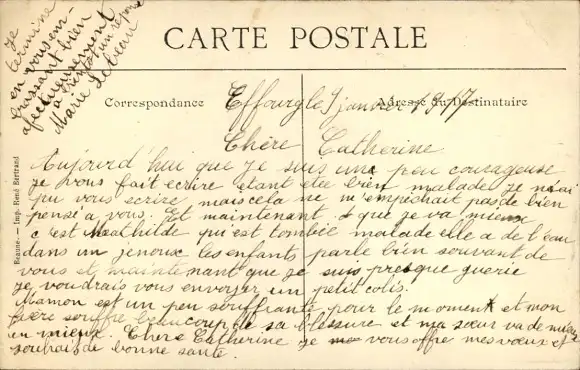 CARTE POSTALE
Correspondance
Adresse du Destinataire
Effourg le 9 janvier 1917
Chère Catherine
Aujourd'hui que je suis une peu courageuse
je vous fait ecrire etant etee bien malade je n'ai
pu vous ecrire mais cela ne m'empéchait pas de bien
pensé a vous. Et maintenant que je va mieux
c'est Mathilde qui est tombée malade elle a de l'eau
dans un jenoux les enfants parle bien souvant de
vous et maintenant que je suis presque guerie
je voudrais vous envoyer un petit colis.
Maman est un peu souffrante pour le moment et mon
frère souffre beaucoup de sa blessure et ma sœur va de mieux
en mieux. Chere Catherine je vous offre mes vœux et
souhait de bonne santé.
Je
termine
en vous em-
brassant bien
afectueusement
a bientôt un réponse
Marie
Beaune. — Imp. René Bertrand